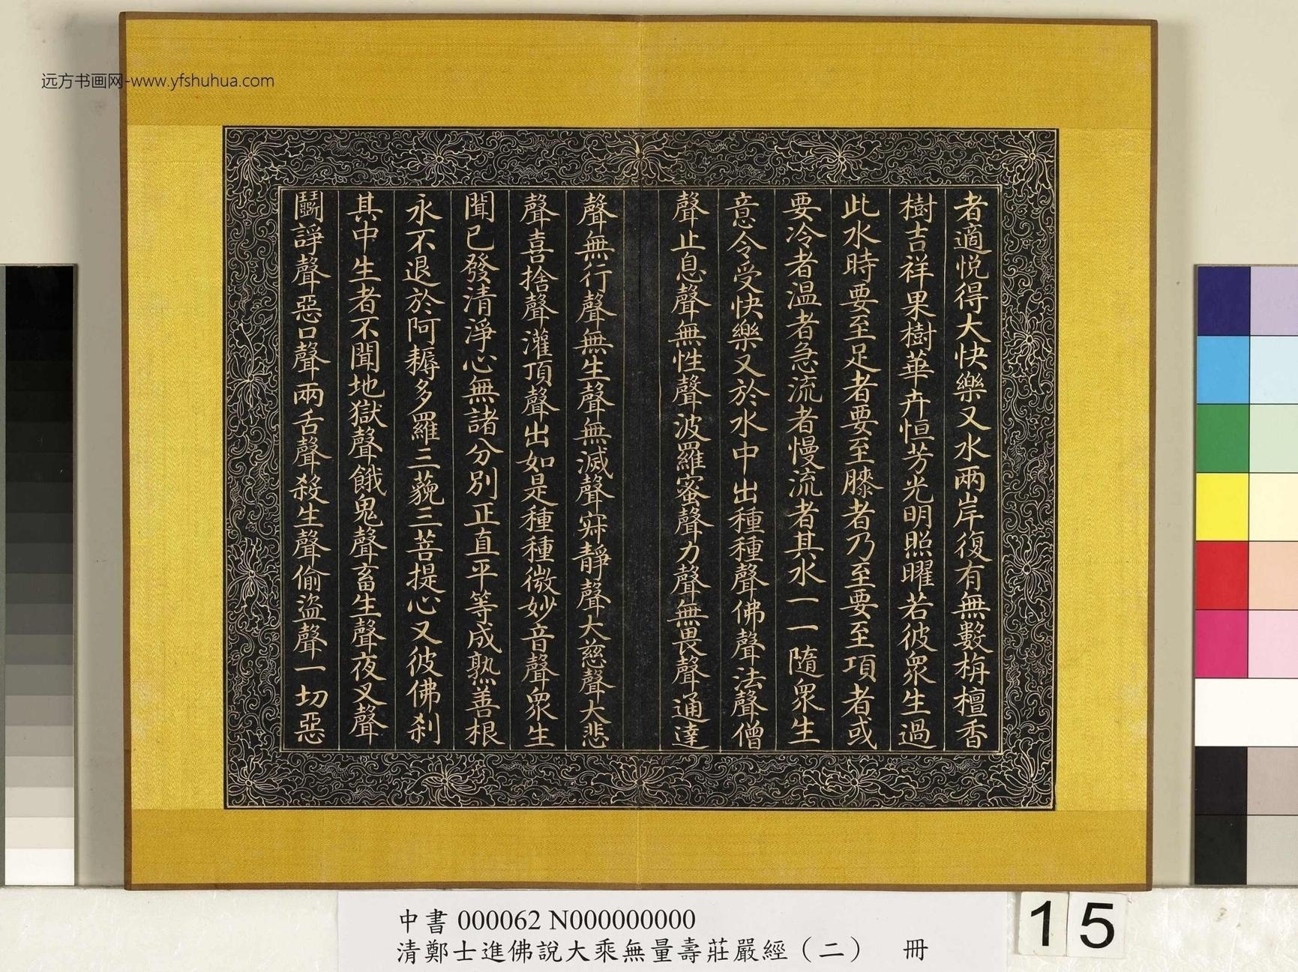 远方书画网-www.yfshuhua.com
者適悦得大快樂又水兩岸復有無數栴檀香
樹吉祥果樹華卉恒芳光明照曜若彼衆生過
此水時要至足者要至膝者乃至要至項者或
要冷者温者急流者慢流者其水一一隨衆生
意令受快樂又於水中出種種聲佛聲法聲僧
聲止息聲無性聲波羅蜜聲力聲無畏聲通達
聲無行聲無生聲無滅聲寂靜聲大慈聲大悲
聲喜捨聲灌頂聲出如是種種微妙音聲衆生
聞已發清淨心無諸分別正直平等成熟善根
永不退於阿耨多羅三藐三菩提心又彼佛刹
其中生者不聞地獄聲餓鬼聲畜生聲夜叉聲
鬭諍聲惡口聲兩舌聲殺生聲偷盗聲一切惡
中書 000062 N000000000
清鄭士進佛說大乘無量壽莊嚴經（二） 冊
15